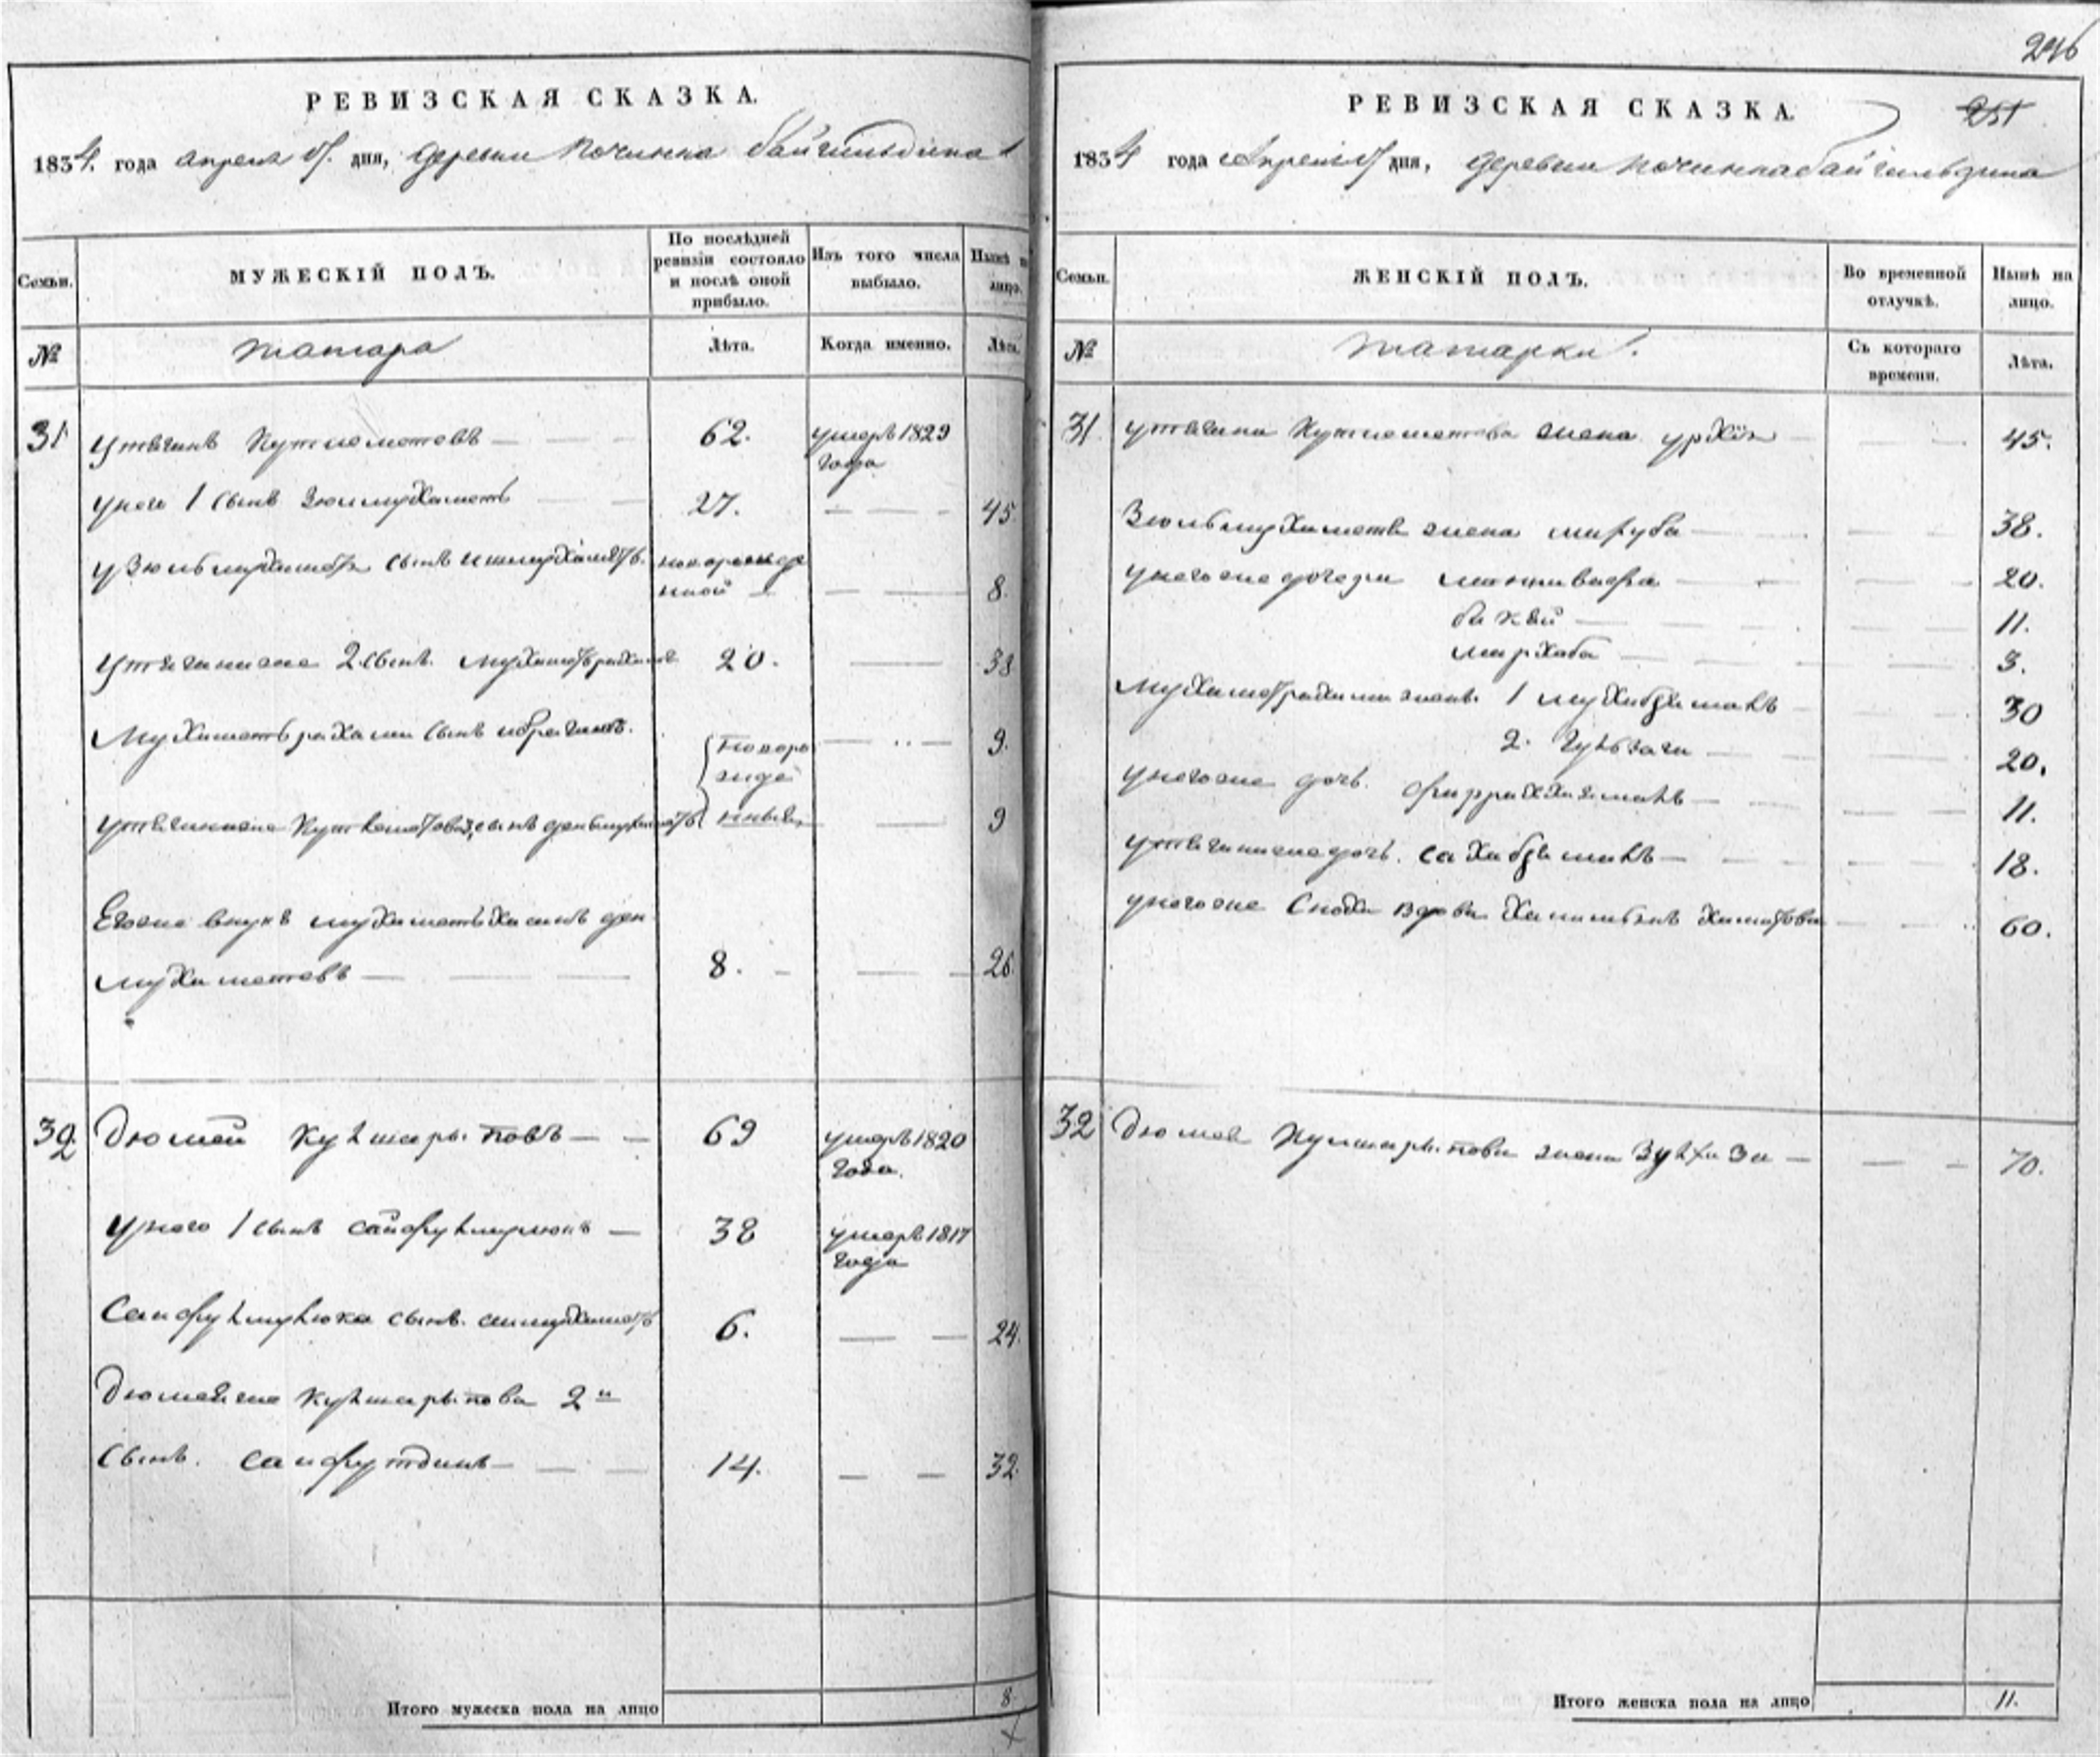 РЕВИЗСКАЯ СКАЗКА.
1834. года апреля дня, деревни Починка Байгильдина
Семьи. МУЖЕСКІЙ ПОЛЪ. По послѣдней ревизіи состояло и послѣ оной прибыло. Изъ того числа выбыло. Нынѣ на лицо.
№ татара Лѣта. Когда именно. Лѣта.
31 Утягинъ Кутлеметевъ — 62. умеръ 1829 года
у него 1 сынъ Зюлмухаметъ 27. — 45
у Зюльмухаметя сынъ ишмухаметь новорожденной — 8.
Утягинаже 2. сынъ. мухаметьрахимъ 20. — 38
Мухаметь рахими сынъ ибрагимъ. новорожденныя — 9.
утягинаже Кутлеметева 3, сынъ деньмухаметь — 9
Егоже внукъ мухаметьхасинъ ден
мухаметевъ — 8. — 26
32. Дюмей Кулшарыповъ — 69 умеръ 1820 года.
у него 1 сынъ сайфулмулюкъ — 38 умеръ 1817 года
Сайфулмулюка сынъ. 6. — 24.
Дюмеяже кулшарыпова 2й
сынъ. сайфутдинъ — 14. — 32.
Итого мужеска пола на лицо 8
246
РЕВИЗСКАЯ СКАЗКА.
251
1834 года Апреля дня, деревни починка байгильдина
Семьи. ЖЕНСКІЙ ПОЛЪ. Во временной отлучкѣ. Нынѣ на лицо.
№ татарки. Съ котораго времени. Лѣта.
31. утягина Кутлеметева жена — 45.
Зюльмухаметя жена — 38.
у негоже дочери — 20.
— 11.
мирхаба — 3.
Мухаметрахими жены. 1 — 30
2. Гульзаги — 20.
у негоже дочь. — 11.
утягинаже дочь. — 18.
у негоже Сноха вдова — 60.
32 Дюмея Кулшарыпова жена — 70.
Итого женска пола на лицо 11.